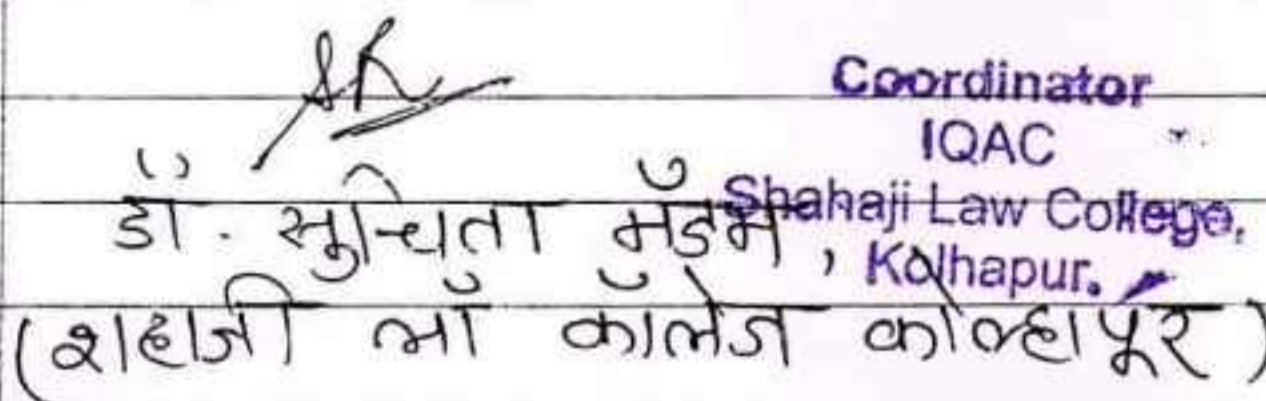 SK
Coordinator
IQAC
Shahaji Law College,
Kolhapur.
डॉ. सुचिता मॅडम,
(शहाजी लॉ कॉलेज कोल्हापूर)